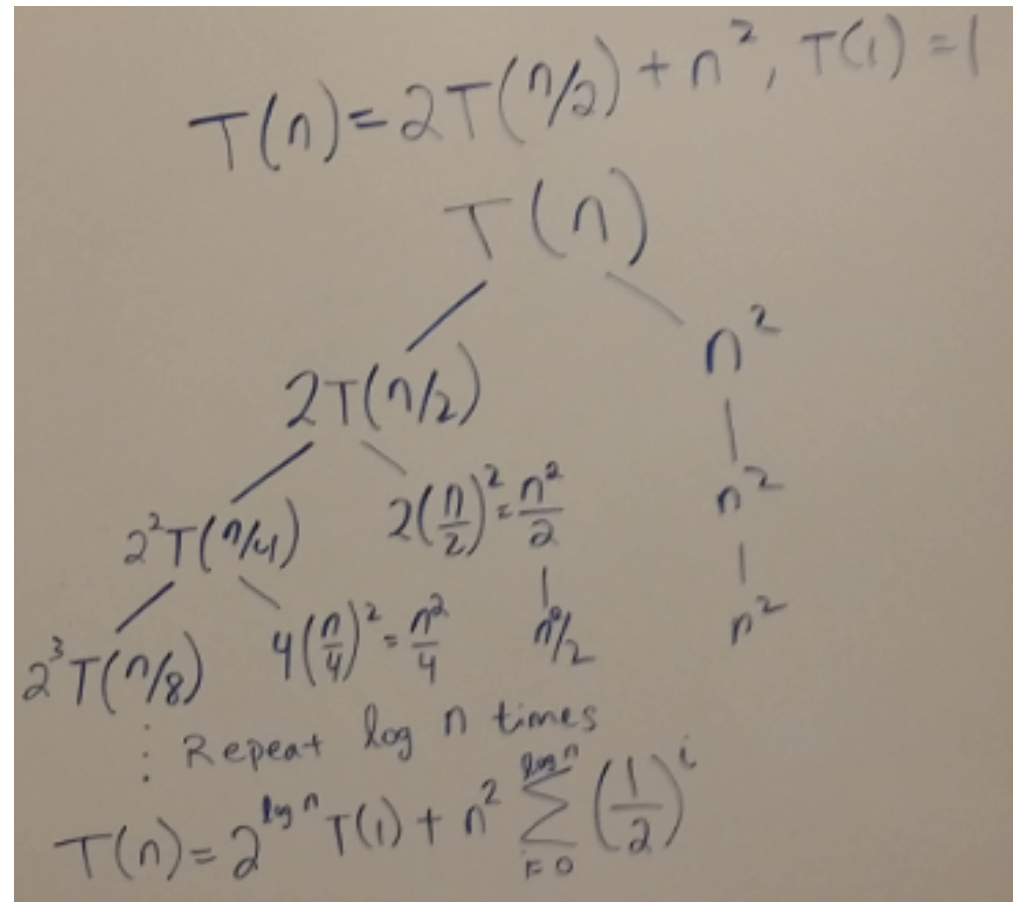 T(n)=2T(n/2)+n², T(1)=1
T(n)
2T(n/2) n²
2²T(n/4) 2(n/2)²=n²/2 n²
2³T(n/8) 4(n/4)²=n²/4 n²/2 n²
⋮ Repeat log n times
T(n)=2^{log n} T(1)+n² ∑_{i=0}^{log n} (1/2)^i